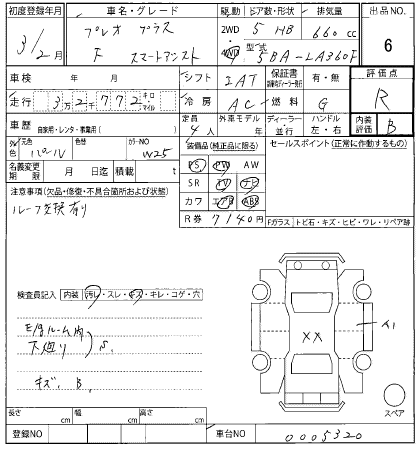 初度登録年月 車名・グレード 駆動 ドア数・形状 排気量 出品NO
31/2月 プレオ プラス 2WD 5 HB 660 cc 6
F スマートアシスト 4WD 型式 5BA-LA360F
車検 年 月 シフト IAT 保証書 有・無 評価点
走行 3万2千772 キロ マイル 冷房 AC 燃料 G R
車歴 自家用・レンタ・事業用( ) 定員 4人 外車モデル 年 ディーラー・並行 ハンドル 左・右 内装評価 B
外色 元色 パール 色替 カラーNO W25 装備品(純正品に限る) セールスポイント(正常に作動するもの)
名義変更期限 月 日迄 積載 t PS PW AW
注意事項(欠品・修復・不具合箇所および状態) SR TV ナビ
ルーフ交換有り カワ エアB ABS
R券 7140円 Fガラス トビ石・キズ・ヒビ・ワレ・リペア跡
検査員記入 内装 汚レ・スレ・キズ・キレ・コゲ・穴
E/gルーム内
下廻り S.
キズ、B.
XX
A1
スペア
長さ cm 幅 cm 高さ cm
登録NO 車台NO 0005320